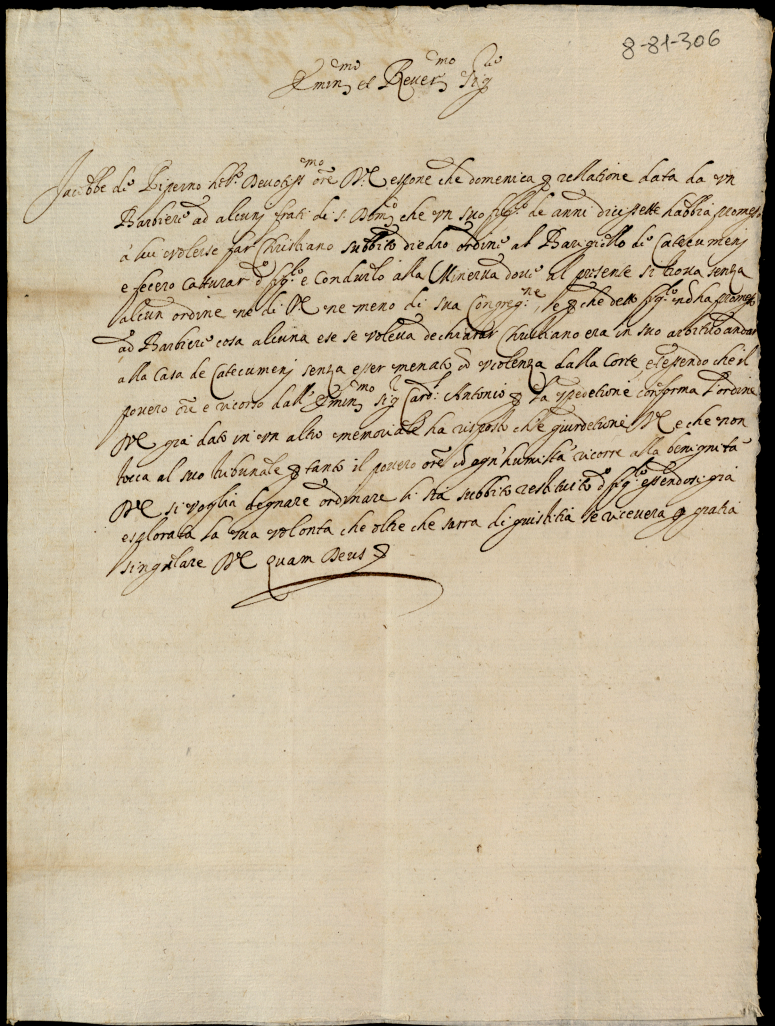 8-81-306
Emin.mo et Rever.mo Sig.re
Jacobbe de Piperno heb.o Devotiss.mo ore VE espone che domenica p rellatione data da un
Barbiere ad alcuni frati di s. Dom.co che un suo fig.lo de anni diecisette habbia promesso
a lui volerse far Christiano subbito diedro ordine al Barigello de Catecumeni
e fecero catturar d.o fig.lo e condurlo alla Minerva dove al presente si trova senza
alcun ordine ne di VE ne meno di sua Congreg.ne, e p che detto fig.lo nō ha promesso
ad Barbiere cosa alcuna e se se voleva dechiarar Christiano era in suo arbitrio andar
alla Casa de Catecumeni senza esser menato cō violenza dalla Corte, et essendo che il
povero ore e ricorso dall' Emin.mo Sig.r Card. Antonio p la spedetione conforma l'ordine
VE gia dato in un altro memoriale ha risposto che è giurdetione VE e che non
tocca al suo tribunale p tanto il povero ore cō ogn'humiltà ricorre alla benignità
VE si voglia degnare ordinare li sia subbito restituito d.o fig.lo essendosi già
esplorata la sua volonta che oltre che sarra di giustitia se riceverà p gratia
singulare VE quam Deus